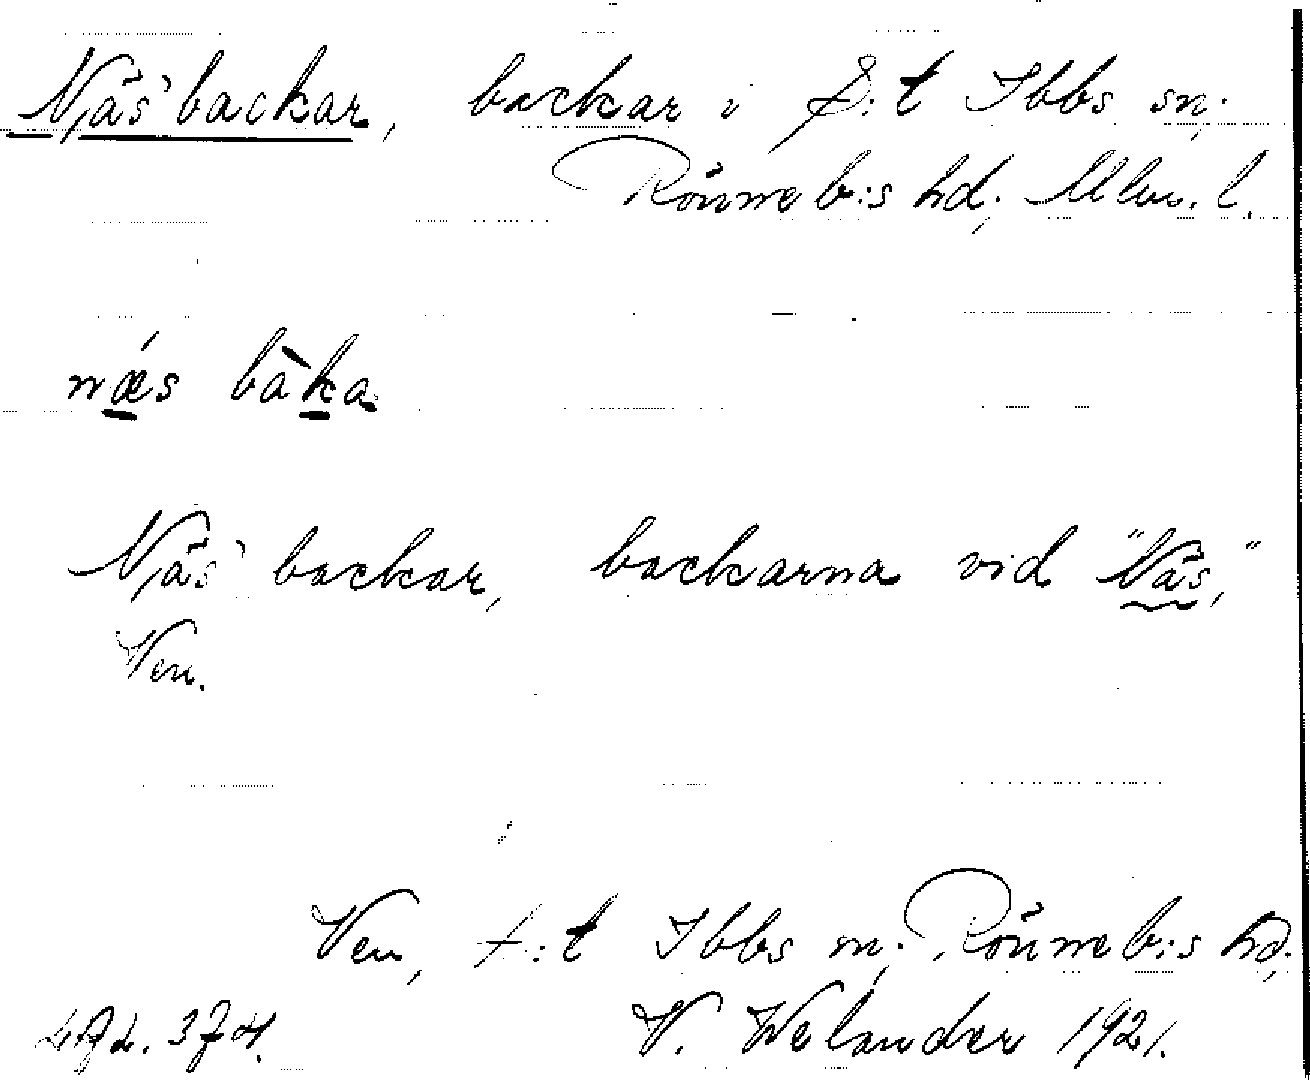 Näs' backar, backar i S:t Ibbs sn;
Rönneb:s hd; Mlm. l.
næs bàka
Näs' backar, backarna vid "Näs,"
Ven.
Ven, S:t Ibbs sn; Rönneb:s hd.
V. Welander 1921.